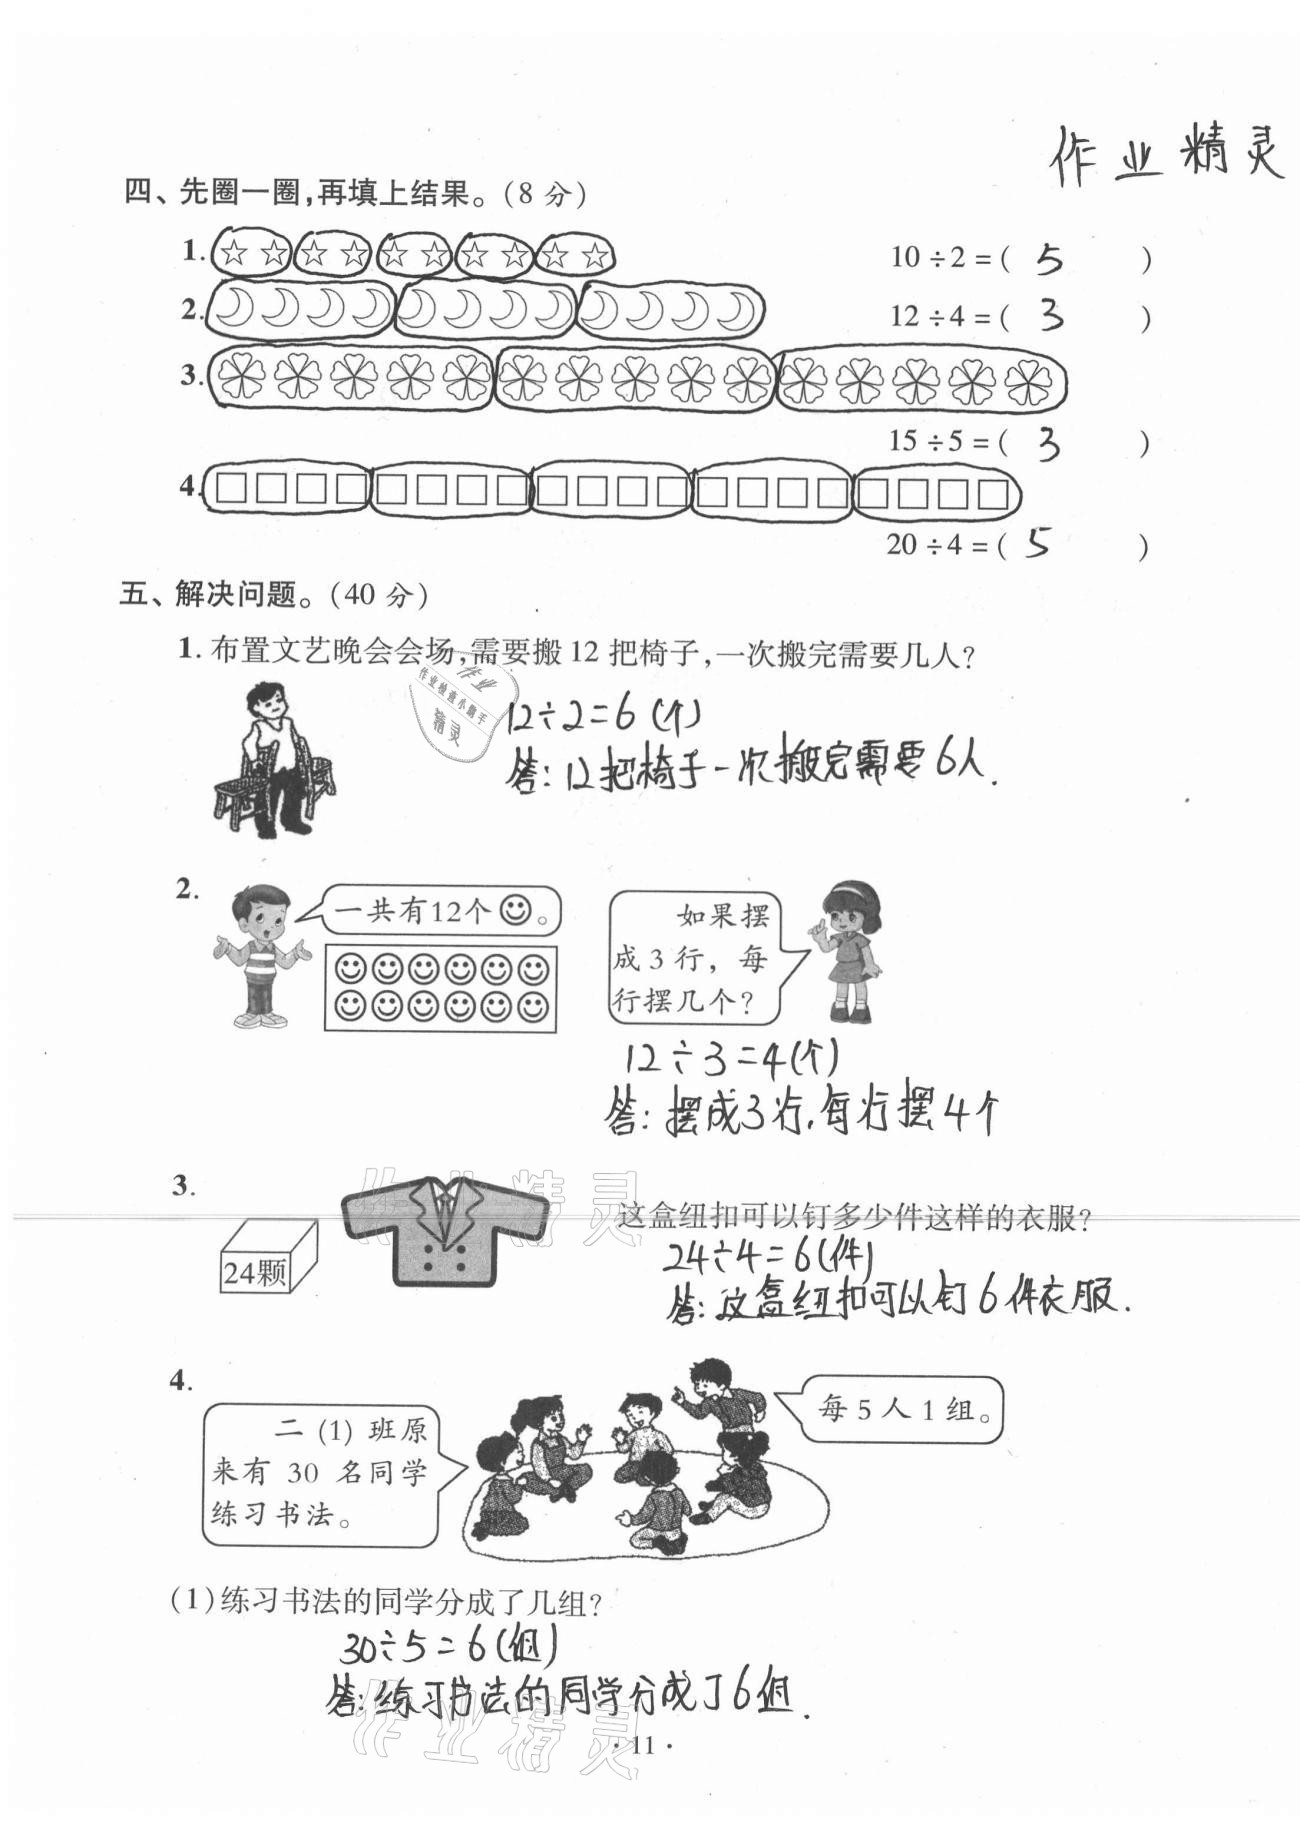 作业精灵
四、先圈一圈,再填上结果。(8 分)
1. 10÷2=( 5 )
2. 12÷4=( 3 )
3.
15÷5=( 3 )
4.
20÷4=( 5 )
五、解决问题。(40 分)
1. 布置文艺晚会会场,需要搬 12 把椅子,一次搬完需要几人?
作业
作业检查小助手
精灵
12÷2=6(个)
答:12把椅子一次搬完需要6人.
2.
一共有12个。
如果摆
成 3 行，每
行摆几个?
12÷3=4(个)
答:摆成3行,每行摆4个
3.
这盒纽扣可以钉多少件这样的衣服?
24颗
24÷4=6(件)
答:这盒纽扣可以钉6件衣服.
作业精灵
4.
每 5 人 1 组。
二 (1) 班原
来有 30 名同学
练习书法。
(1)练习书法的同学分成了几组?
30÷5=6(组)
答:练习书法的同学分成了6组.
作业精灵
· 11 ·